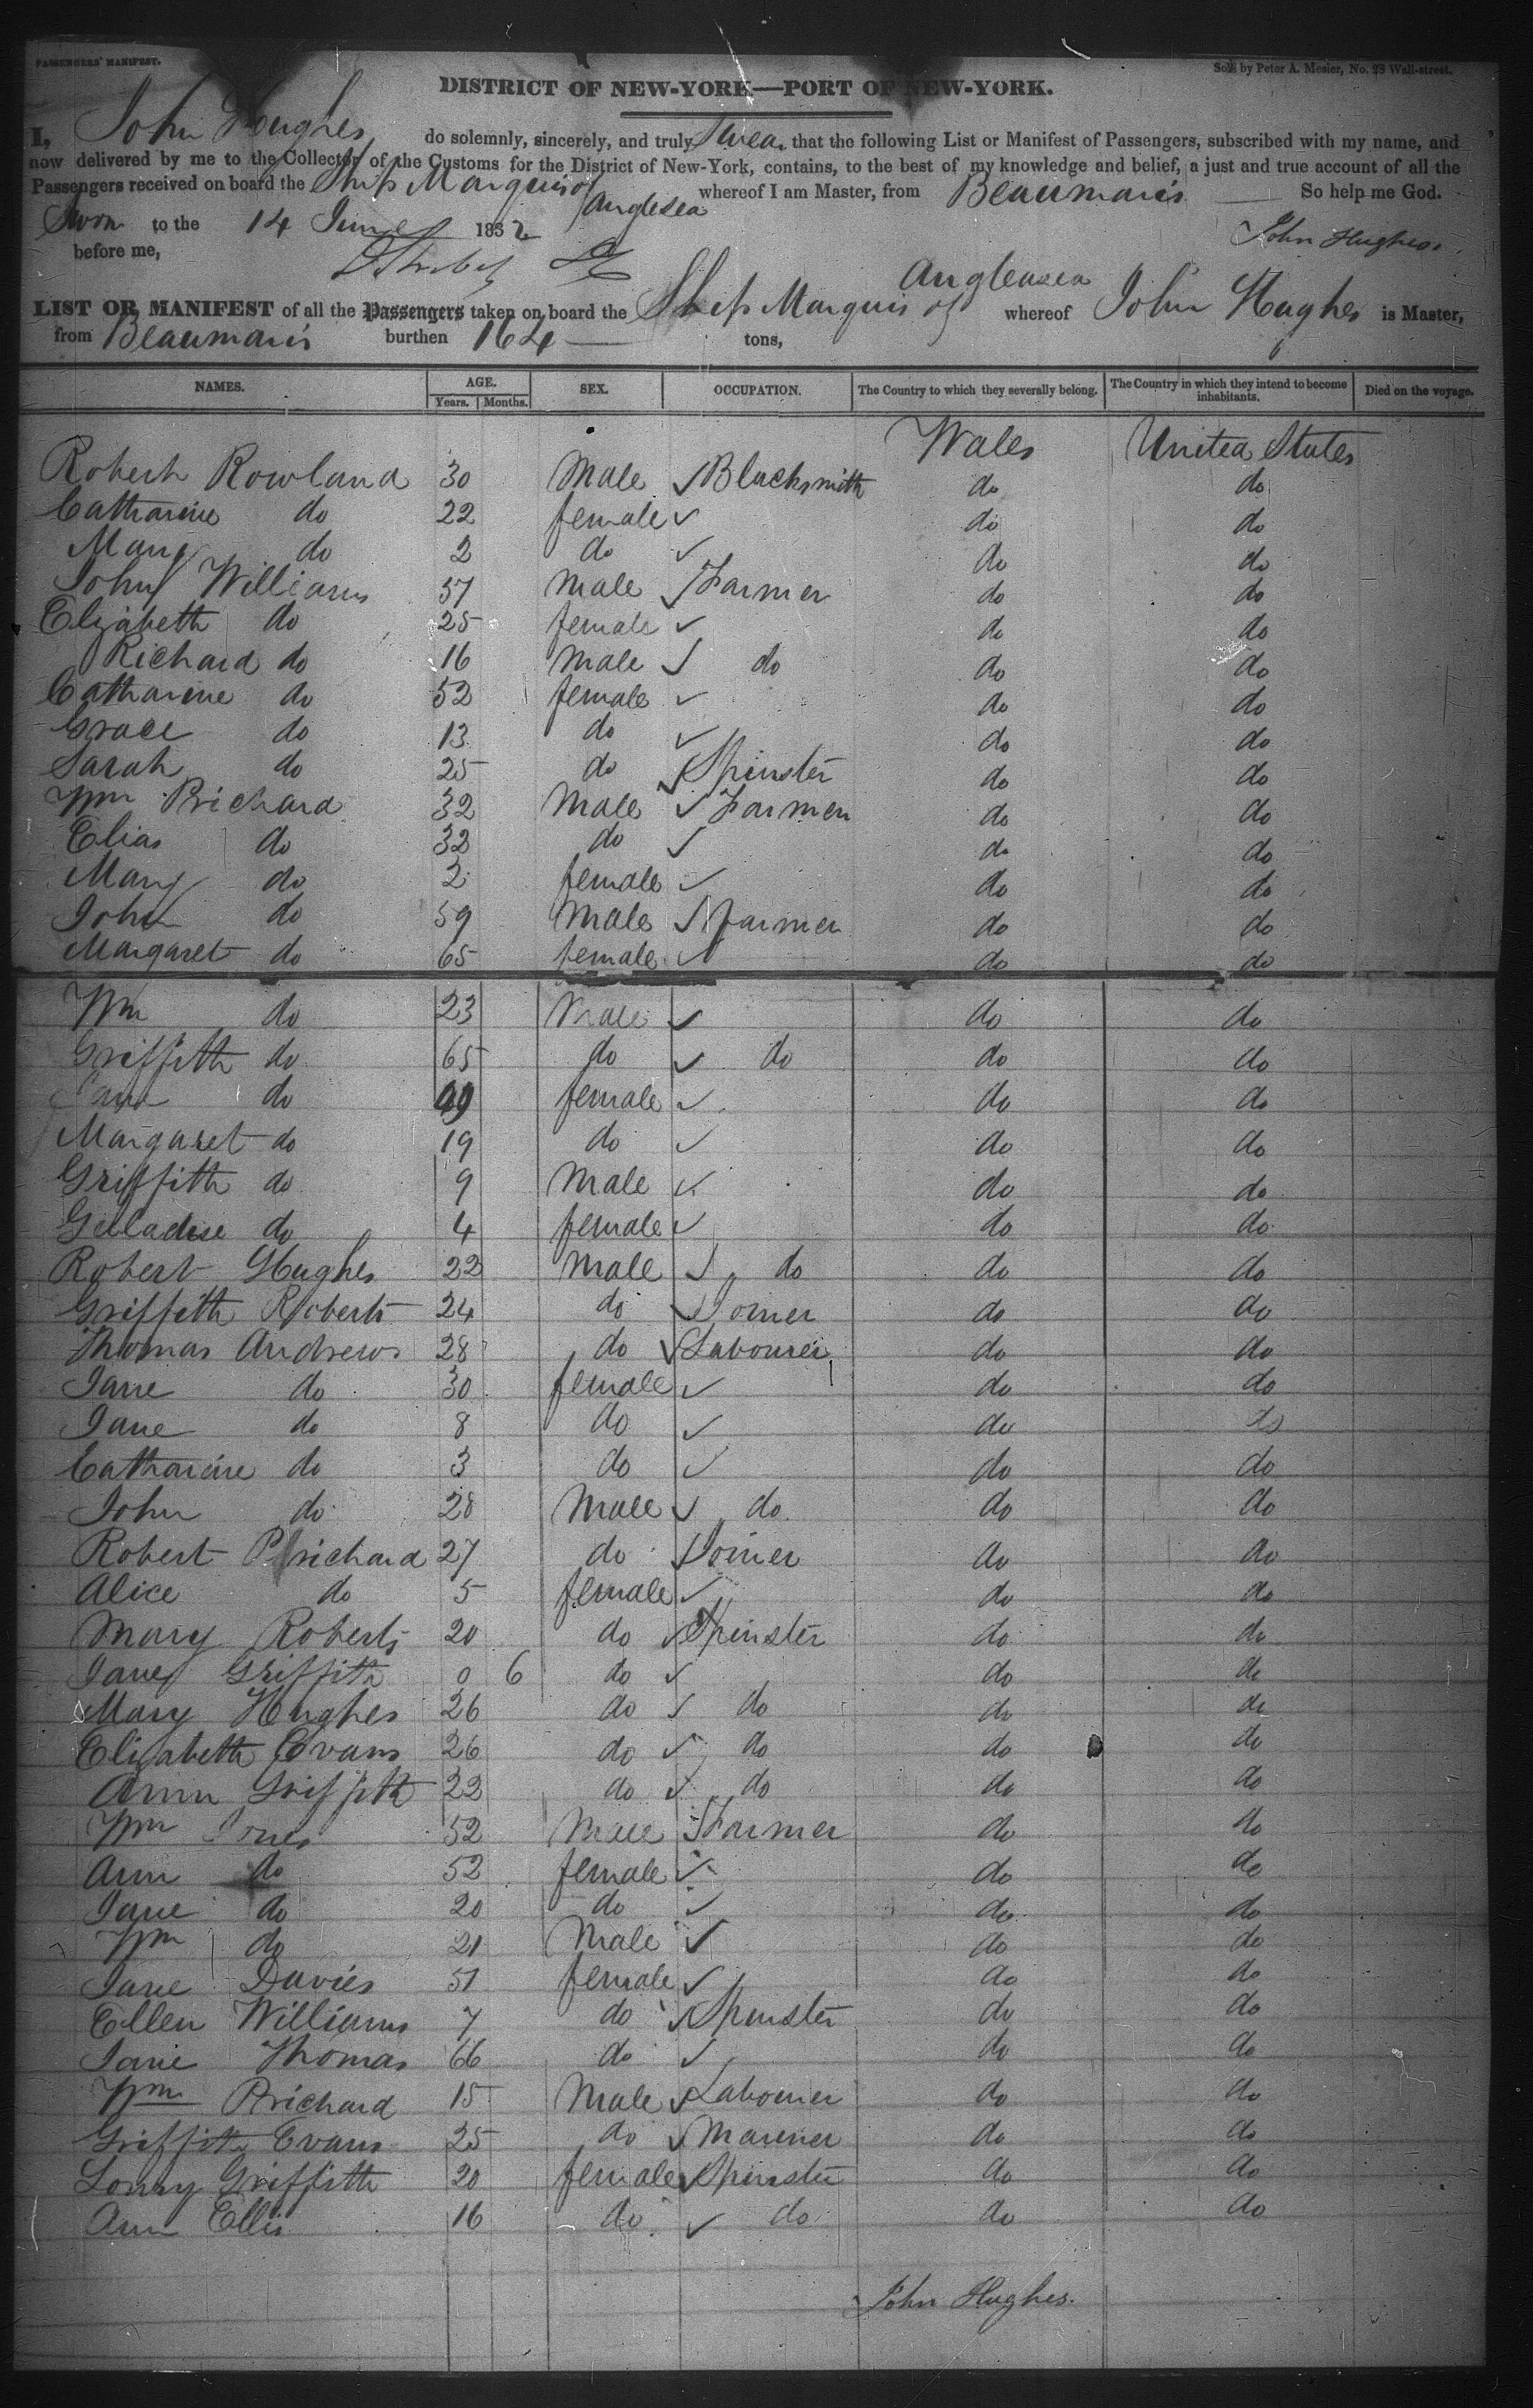 PASSENGERS' MANIFEST.
Sold by Peter A. Mesier, No. 28 Wall-street.
DISTRICT OF NEW-YORK—PORT OF NEW-YORK.
I, John Hughes do solemnly, sincerely, and truly Swear that the following List or Manifest of Passengers, subscribed with my name, and
now delivered by me to the Collector of the Customs for the District of New-York, contains, to the best of my knowledge and belief, a just and true account of all the
Passengers received on board the Ship Marquis of Anglesea whereof I am Master, from Beaumaris So help me God.
Sworn to the 14 June 1832 John Hughes.
before me,
LIST OR MANIFEST of all the Passengers taken on board the Ship Marquis of Angleasea whereof John Hughes is Master,
from Beaumaris burthen 164 tons,
NAMES. AGE. Years. Months. SEX. OCCUPATION. The Country to which they severally belong. The Country in which they intend to become inhabitants. Died on the voyage.
Wales United States
Robert Rowland 30 Male Blacksmith do do
Catharine do 22 female do do
Mary do 2 do do do
John Williams 57 Male Farmer do do
Elizabeth do 25 female do do
Richard do 16 Male do do do
Catharine do 52 female do do
Grace do 13 do do do
Sarah do 25 do Spinster do do
Wm Prichard 32 Male Farmer do do
Elias do 32 do do do
Mary do 2 female do do
John do 59 Male Farmer do do
Margaret do 65 female do do
Wm do 23 Male do do
Griffith do 65 do do do do
do female do do
Margaret do 19 do do do
Griffith do 9 Male do do
do 4 female do do
Robert Hughes 22 Male do do do
Griffith Roberts 24 do Joiner do do
Thomas Andrews 28 do Labourer do do
Jane do 30 female do do
Jane do 8 do do do
Catharine do 3 do do do
John do 28 Male do do do
Robert Prichard 27 do Joiner do do
Alice do 5 female do do
Mary Roberts 20 do Spinster do do
Jane Griffith 0 6 do do do
Mary Hughes 26 do do do do
Elizabeth Evans 26 do do do do
Ann Griffith 22 do do do do
Wm Jones 52 Male Farmer do do
Ann do 52 female do do
Jane do 20 do do do
Wm do 21 Male do do
Jane Davies 51 female do do
Ellen Williams 7 do Spinster do do
Jane Thomas 66 do do do
Wm Prichard 15 Male Labourer do do
Griffith Evans 25 do Mariner do do
Lowry Griffith 20 female Spinster do do
Ann Ellis 16 do do do do
John Hughes.